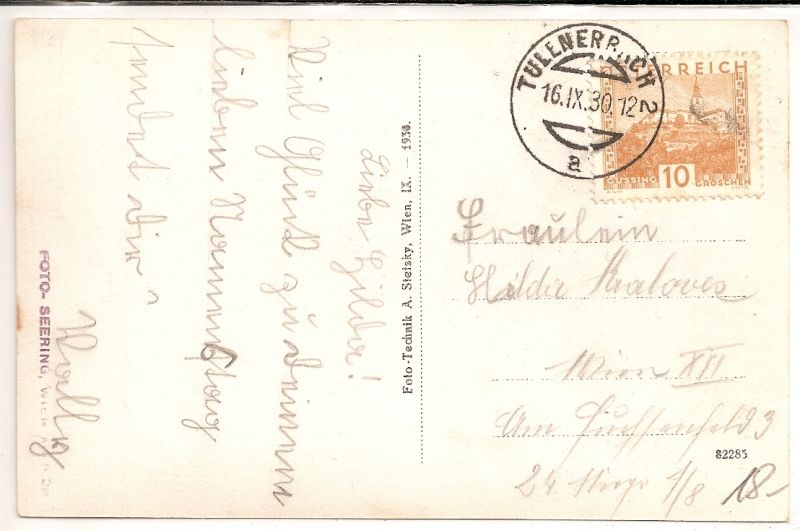 Liebe Hilda!
Viel Glück zu deinem
lieben Namenstag
sendet dir
Wally
FOTO-SEERING, WIEN
Foto-Technik A. Stefsky, Wien, IX. — 1930.
TULLNERBACH 2
16.IX.30.12
a
ÖSTERREICH
GÜSSING 10 GROSCHEN
Fräulein
Hilda
Wien XII
Am Fuchsenfeld 3
24 Stiege 1/8
18-
82285